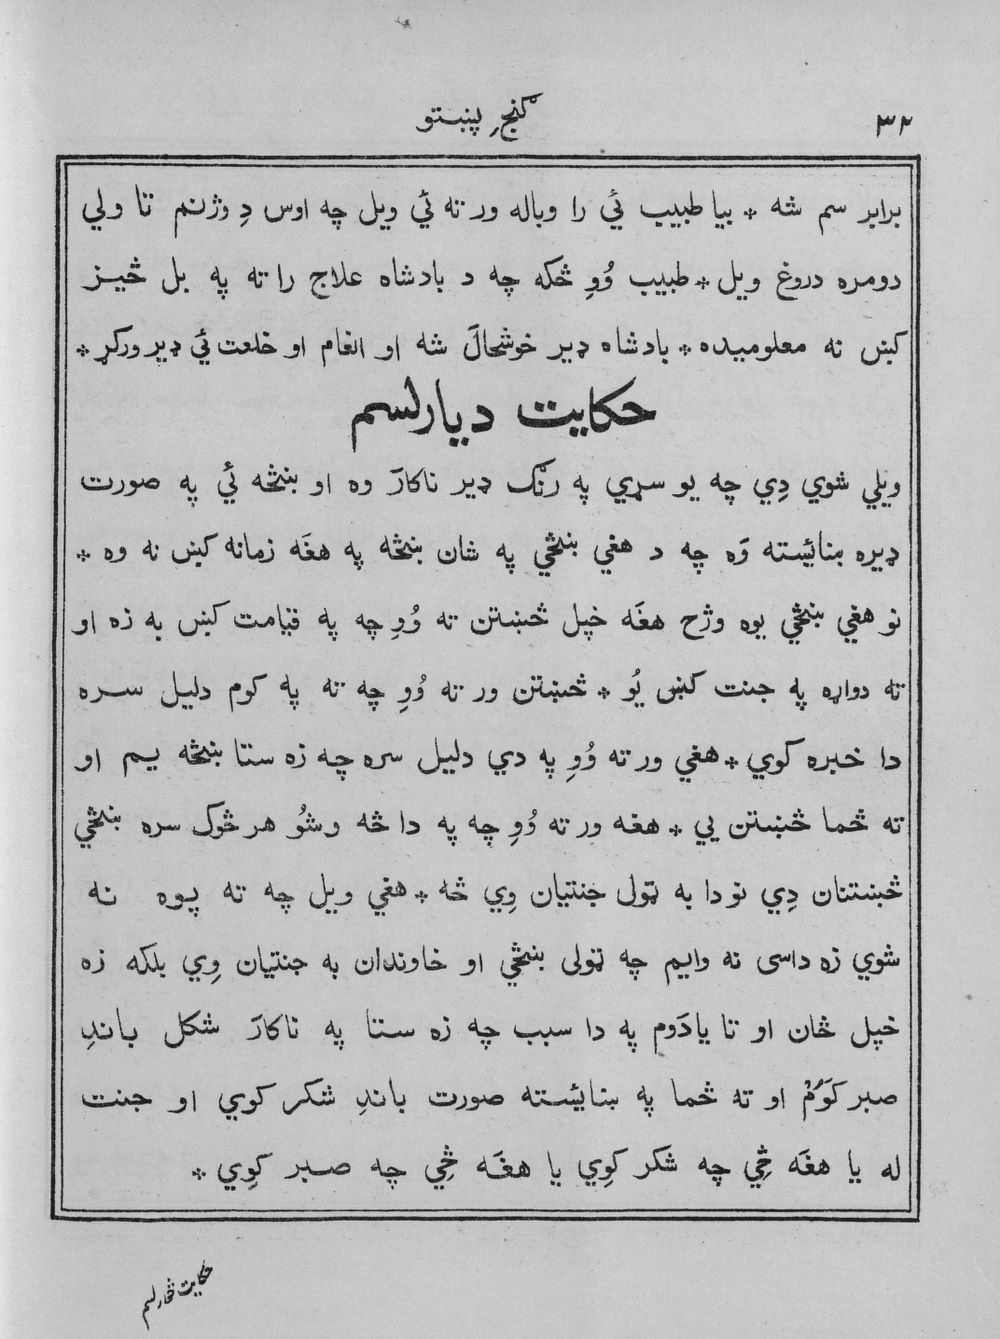 ۳۲
گنجِ پښتو
برابر سم شه * بیا طبیب ئَي را وباله ور ته ئَي ویل چه اوس دِ وژنم تا ولي
دومره دروغ ویل * طبیب وُوِ څکه چه د بادشاه علاج را ته په بل څیز
کښ نه معلومیده * بادشاه ډیر خوشحالَ شه او انعام او خلعت ئَي ډیر ورکړ *
حکایت دیارلسم
ویلي شوي دِي چه یو سړي په رنګ ډیر ناکارَ وه او ښځه ئَي په صورت
ډیره ښائسته وَه چه د هغي ښځي په شان ښځه په هغَه زمانه کښ نه وه *
نو هغي ښځي یوه وژح هغَه خپل څښتن ته وُوِ چه په قیامت کښ به زه او
ته دواړه په جنت کښ یُو * څښتن ور ته وُوِ چه ته په کوم دلیل سره
دا خبره کوي * هغي ور ته وُوِ په دي دلیل سره چه زه ستا ښځه یم او
ته څما څښتن یي * هغه ور ته وُوِ چه په دا څه وشوُ هر څوک سره ښځي
څښتنان دِي نو دا به ټولی جنتیان وِي څه * هغي ویل چه ته پوه نه
شوي زه داسی نه وایم چه ټولی ښځي او خاوندان به جنتیان وِي بلکه زه
خپل ځان او تا یادَوم په دا سبب چه زه ستا په ناکارَ شکل باندِ
صبر کوَمُ او ته څما په ښائسته صورت باندِ شکر کوي او جنت
له یا هغَه څِي چه شکر کوِي یا هغَه څِي چه صبر کوِي *
حکایت څوارلسم